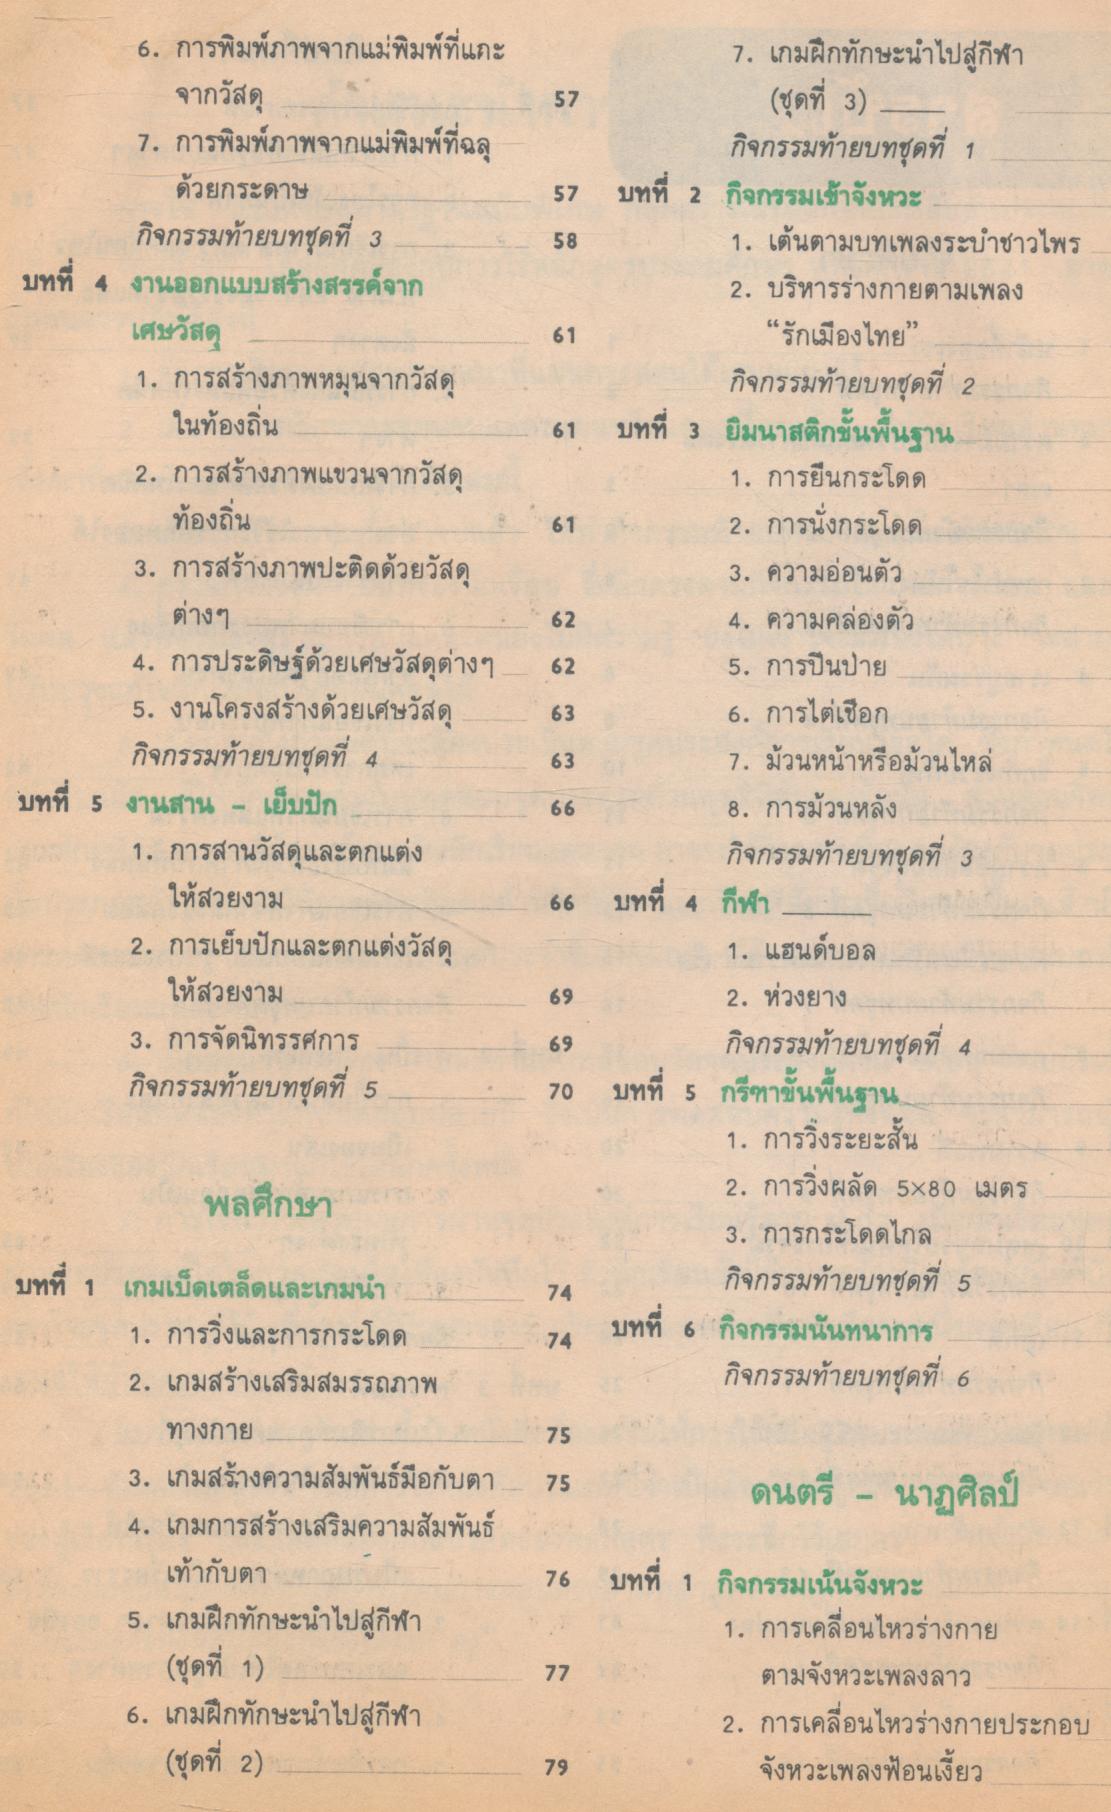 6. การพิมพ์ภาพจากแม่พิมพ์ที่แกะ
จากวัสดุ 57
7. การพิมพ์ภาพจากแม่พิมพ์ที่ฉลุ
ด้วยกระดาษ 57
กิจกรรมท้ายบทชุดที่ 3 58
บทที่ 4 งานออกแบบสร้างสรรค์จาก
เศษวัสดุ 61
1. การสร้างภาพหมุนจากวัสดุ
ในท้องถิ่น 61
2. การสร้างภาพแขวนจากวัสดุ
ท้องถิ่น 61
3. การสร้างภาพปะติดด้วยวัสดุ
ต่างๆ 62
4. การประดิษฐ์ด้วยเศษวัสดุต่างๆ 62
5. งานโครงสร้างด้วยเศษวัสดุ 63
กิจกรรมท้ายบทชุดที่ 4 63
บทที่ 5 งานสาน – เย็บปัก 66
1. การสานวัสดุและตกแต่ง
ให้สวยงาม 66
2. การเย็บปักและตกแต่งวัสดุ
ให้สวยงาม 69
3. การจัดนิทรรศการ 69
กิจกรรมท้ายบทชุดที่ 5 70
พลศึกษา
บทที่ 1 เกมเบ็ดเตล็ดและเกมนำ 74
1. การวิ่งและการกระโดด 74
2. เกมสร้างเสริมสมรรถภาพ
ทางกาย 75
3. เกมสร้างความสัมพันธ์มือกับตา 75
4. เกมการสร้างเสริมความสัมพันธ์
เท้ากับตา 76
5. เกมฝึกทักษะนำไปสู่กีฬา
(ชุดที่ 1) 77
6. เกมฝึกทักษะนำไปสู่กีฬา
(ชุดที่ 2) 79
7. เกมฝึกทักษะนำไปสู่กีฬา
(ชุดที่ 3)
กิจกรรมท้ายบทชุดที่ 1
บทที่ 2 กิจกรรมเข้าจังหวะ
1. เต้นตามบทเพลงระบำชาวไพร
2. บริหารร่างกายตามเพลง
“รักเมืองไทย”
กิจกรรมท้ายบทชุดที่ 2
บทที่ 3 ยิมนาสติกขั้นพื้นฐาน
1. การยืนกระโดด
2. การนั่งกระโดด
3. ความอ่อนตัว
4. ความคล่องตัว
5. การปีนป่าย
6. การไต่เชือก
7. ม้วนหน้าหรือม้วนไหล่
8. การม้วนหลัง
กิจกรรมท้ายบทชุดที่ 3
บทที่ 4 กีฬา
1. แฮนด์บอล
2. ห่วงยาง
กิจกรรมท้ายบทชุดที่ 4
บทที่ 5 กรีฑาขั้นพื้นฐาน
1. การวิ่งระยะสั้น
2. การวิ่งผลัด 5×80 เมตร
3. การกระโดดไกล
กิจกรรมท้ายบทชุดที่ 5
บทที่ 6 กิจกรรมนันทนาการ
กิจกรรมท้ายบทชุดที่ 6
ดนตรี – นาฏศิลป์
บทที่ 1 กิจกรรมเน้นจังหวะ
1. การเคลื่อนไหวร่างกาย
ตามจังหวะเพลงลาว
2. การเคลื่อนไหวร่างกายประกอบ
จังหวะเพลงฟ้อนเงี้ยว